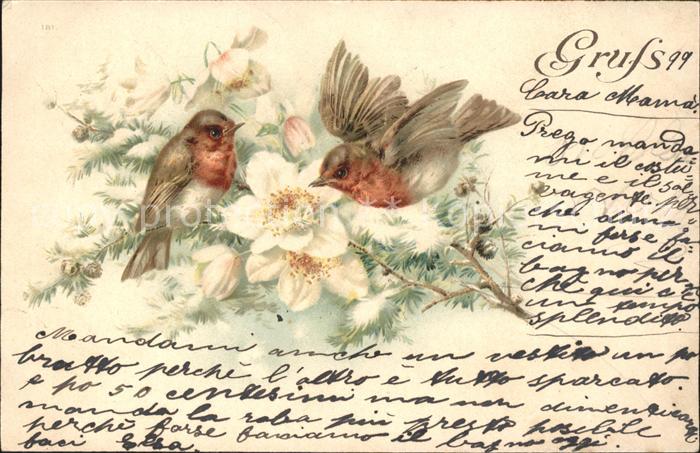 181.
Gruss 99
Cara Mamá
Prego manda
mi il costu
me e il sal
vagente, per
che doma
ni forse fa
ciamo il
bagno per
chè qui è
un tempo
splendito.
Mandami anche un vestito un po
bratto perchè l'altro è tutto sparcato.
e po 50 centesimi ma non dimenticar
manda la roba più presto posibile
perchè forse faciamo il bagno oggi.
baci Elsa.